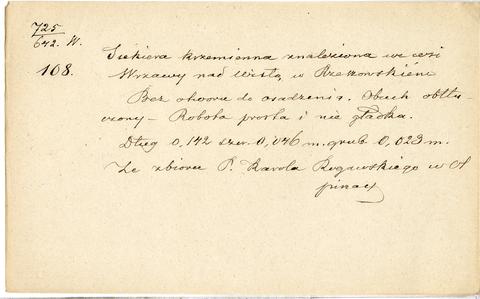 725
642. W.
108.
Siekiera krzemienna znaleziona we wsi
Wrzawy nad Wisłą w Rzeszowskiem
Bez otworu do osadzenia. Obuch obtłu-
czony – Robota prosta i nie gładka.
Dług 0,142 szer. 0,046 m. grub 0,023 m.
Ze zbioru P. Karola Rogawskiego w O
pinacy